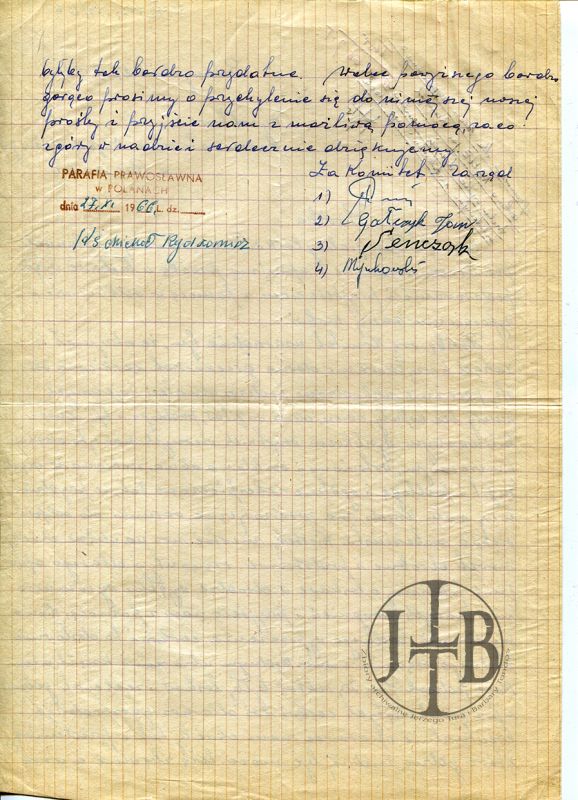 byłyby tak bardzo przydatne. Wobec powyższego bardzo
gorąco prosimy o przychylenie się do niniejszej naszej
prośby i przyjście nam z możliwą pomocą, za co
z góry w nadziei serdecznie dziękujemy.
Za Komitet - zarząd
PARAFIA PRAWOSŁAWNA
w POLANACH
dnia 27.XI 1966, L. dz.
Ks Michał Rydzanicz
1)
2) Gałczyk Jan
3) Senczak
4)
J B
Zbiory archiwalne Jerzego Tura i Barbary Tondos